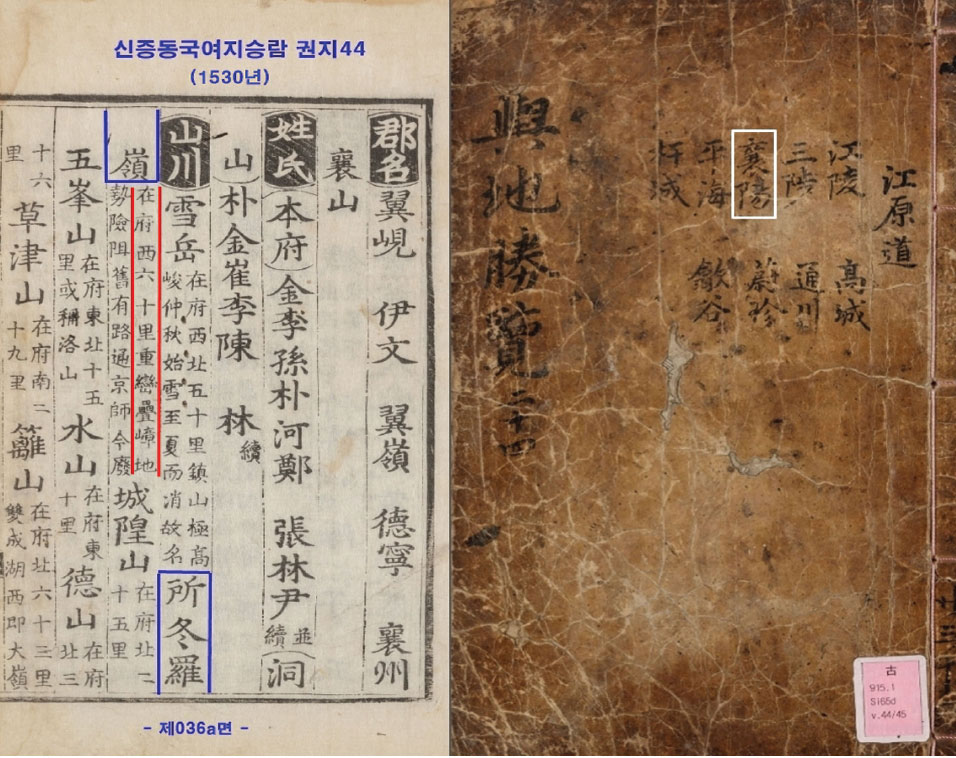 신증동국여지승람 권지44
(1530년)
郡名 翼峴 伊文 翼嶺 德寧 襄州
襄山
姓氏 本府 金李孫朴河鄭 張林尹 並續 洞
山 朴金崔李陳 林 續
山川 雪岳 在府西北五十里鎮山極高峻仲秋始雪至夏而消故名 所冬羅
嶺 在府西六十里重巒疊嶂地勢險阻舊有路通京師今廢 城隍山 在府北二十五里
五峯山 在府東北十五里或稱洛山 水山 在府東十里 德山 在府北三
十六里 草津山 在府南二十九里 籬山 在府北六十三里雙成湖西即大嶺
- 제036a면 -
江原道
江陵 高城
三陟 通川
襄陽 蔚珍
平海 歙谷
杆城
輿地勝覽 二十四
古
915.1
Si65d
v.44/45